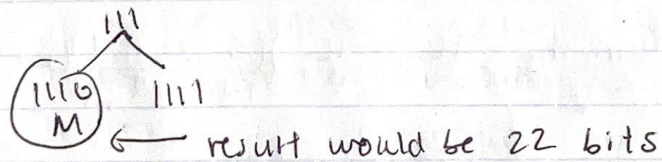 111
1110 1111
M
← result would be 22 bits